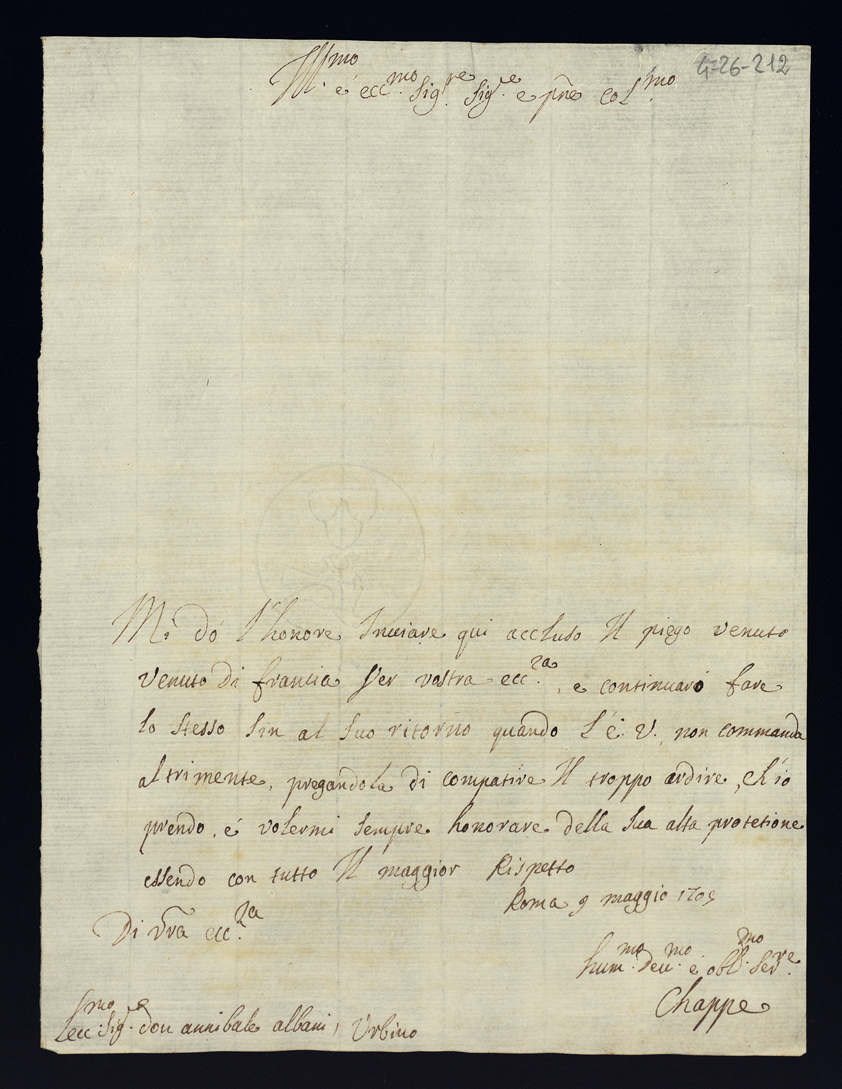 4-26-212
Ill.mo é ecc.mo Sig.re Sig.re e pñe Col.mo
Mi dó l'honore Inuiare qui accluso Il piego venuto
venuto di francia per vostra ecc.za, e continuaró fare
lo stesso Sin al suo ritorno quando l'é. V. non commanda
altrimente, pregandola di compatire Il troppo ardire, ch'io
prendo, é volermi sempre honorare della sua alta protetione
essendo con tutto Il maggior Rispetto
Roma 9 maggio 1705
Di vr̃a ecc.za
hum.mo deu.mo e obl.mo Ser.re
Chappe
ecc. Sig.e don annibale albani, Urbino